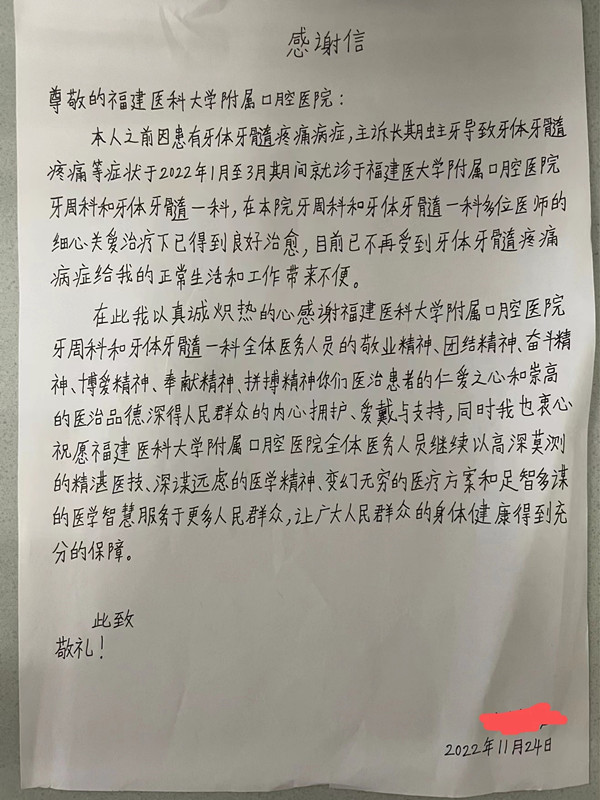 感谢信
尊敬的福建医科大学附属口腔医院：
本人之前因患有牙体牙髓疼痛病症，主诉长期蛀牙导致牙体牙髓
疼痛等症状于2022年1月至3月期间就诊于福建医大学附属口腔医院
牙周科和牙体牙髓一科，在本院牙周科和牙体牙髓一科多位医师的
细心关爱治疗下已得到良好治愈，目前已不再受到牙体牙髓疼痛
病症给我的正常生活和工作带来不便。
在此我以真诚炽热的心感谢福建医科大学附属口腔医院
牙周科和牙体牙髓一科全体医务人员的敬业精神、团结精神、奋斗精
神、博爱精神、奉献精神、拼搏精神你们医治患者的仁爱之心和崇高
的医治品德深得人民群众的内心拥护、爱戴与支持，同时我也衷心
祝愿福建医科大学附属口腔医院全体医务人员继续以高深莫测
的精湛医技、深谋远虑的医学精神、变幻无穷的医疗方案和足智多谋
的医学智慧服务于更多人民群众，让广大人民群众的身体健康得到充
分的保障。
此致
敬礼！
2022年11月24日